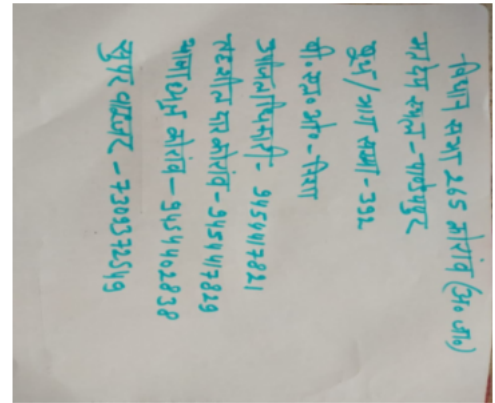 विधान सभा 265 कोरांव (अ० जा०)
मतदेय स्थल - पाण्डेयपुर
बूथ / भाग संख्या - 392
बी० एल० ओ० - निशा
उपजिलाधिकारी - 9454417821
तहसीलदार कोरांव - 9454417829
थानाध्यक्ष कोरांव - 9454402838
सुपरवाइजर - 7309372549